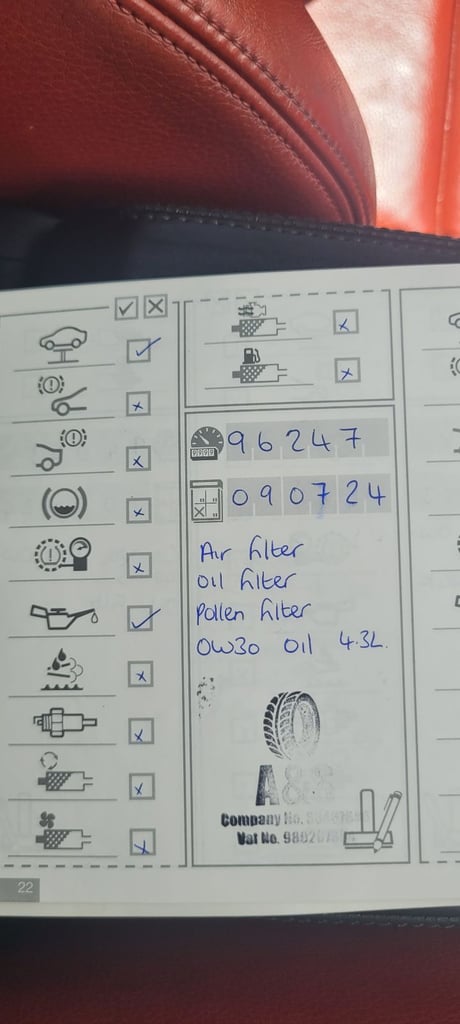 96247
090724
Air filter
oil filter
Pollen filter
0W30 oil 4.3L.
A&S
Company No.
Vat No.
22